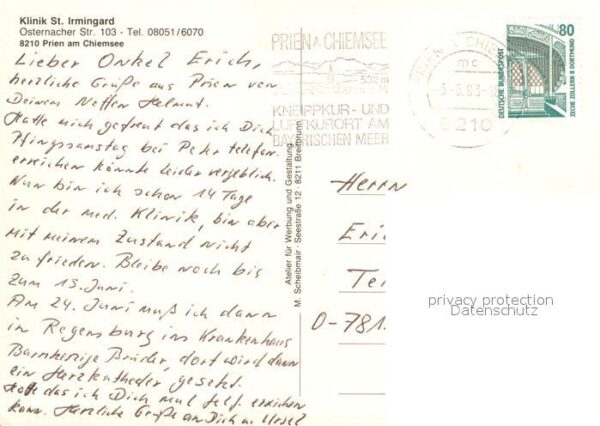 Klinik St. Irmingard
Osternacher Str. 103 - Tel. 08051/6070
8210 Prien am Chiemsee
Lieber Onkel Erich,
herzliche Grüße aus Prien von
Deinem Neffen Helmut.
Hatte mich gefreut das ich Dich
Pfingsamstag bei Peter telefon.
erreichen könnte leider vergeblich.
Nun bin ich schon 14 Tage
in der med. Klinik, bin aber
mit meinem Zustand nicht
zu frieden. Bleibe noch bis
zum 15. Juni.
Am 24. Juni muß ich dann
in Regensburg ins Krankenhaus
Barmherzige Brüder, dort wird dann
ein Herzkatheder gesetzt.
Hoffe das ich Dich mal telf. erreichen
kann. Herzliche Grüße an Dich u. Ursel
Atelier für Werbung und Gestaltung
M. Scheibmair · Seestraße 12 · 8211 Breitbrunn
PRIEN A. CHIEMSEE
532m
KNEIPPKUR- UND
LUFTKURORT AM
BAYRISCHEN MEER
PRIEN A CHIEMSEE
mc
8210
80
DEUTSCHE BUNDESPOST
ZECHE ZOLLERN II DORTMUND
Herrn
Eric
Te
D-781
privacy protection
Datenschutz